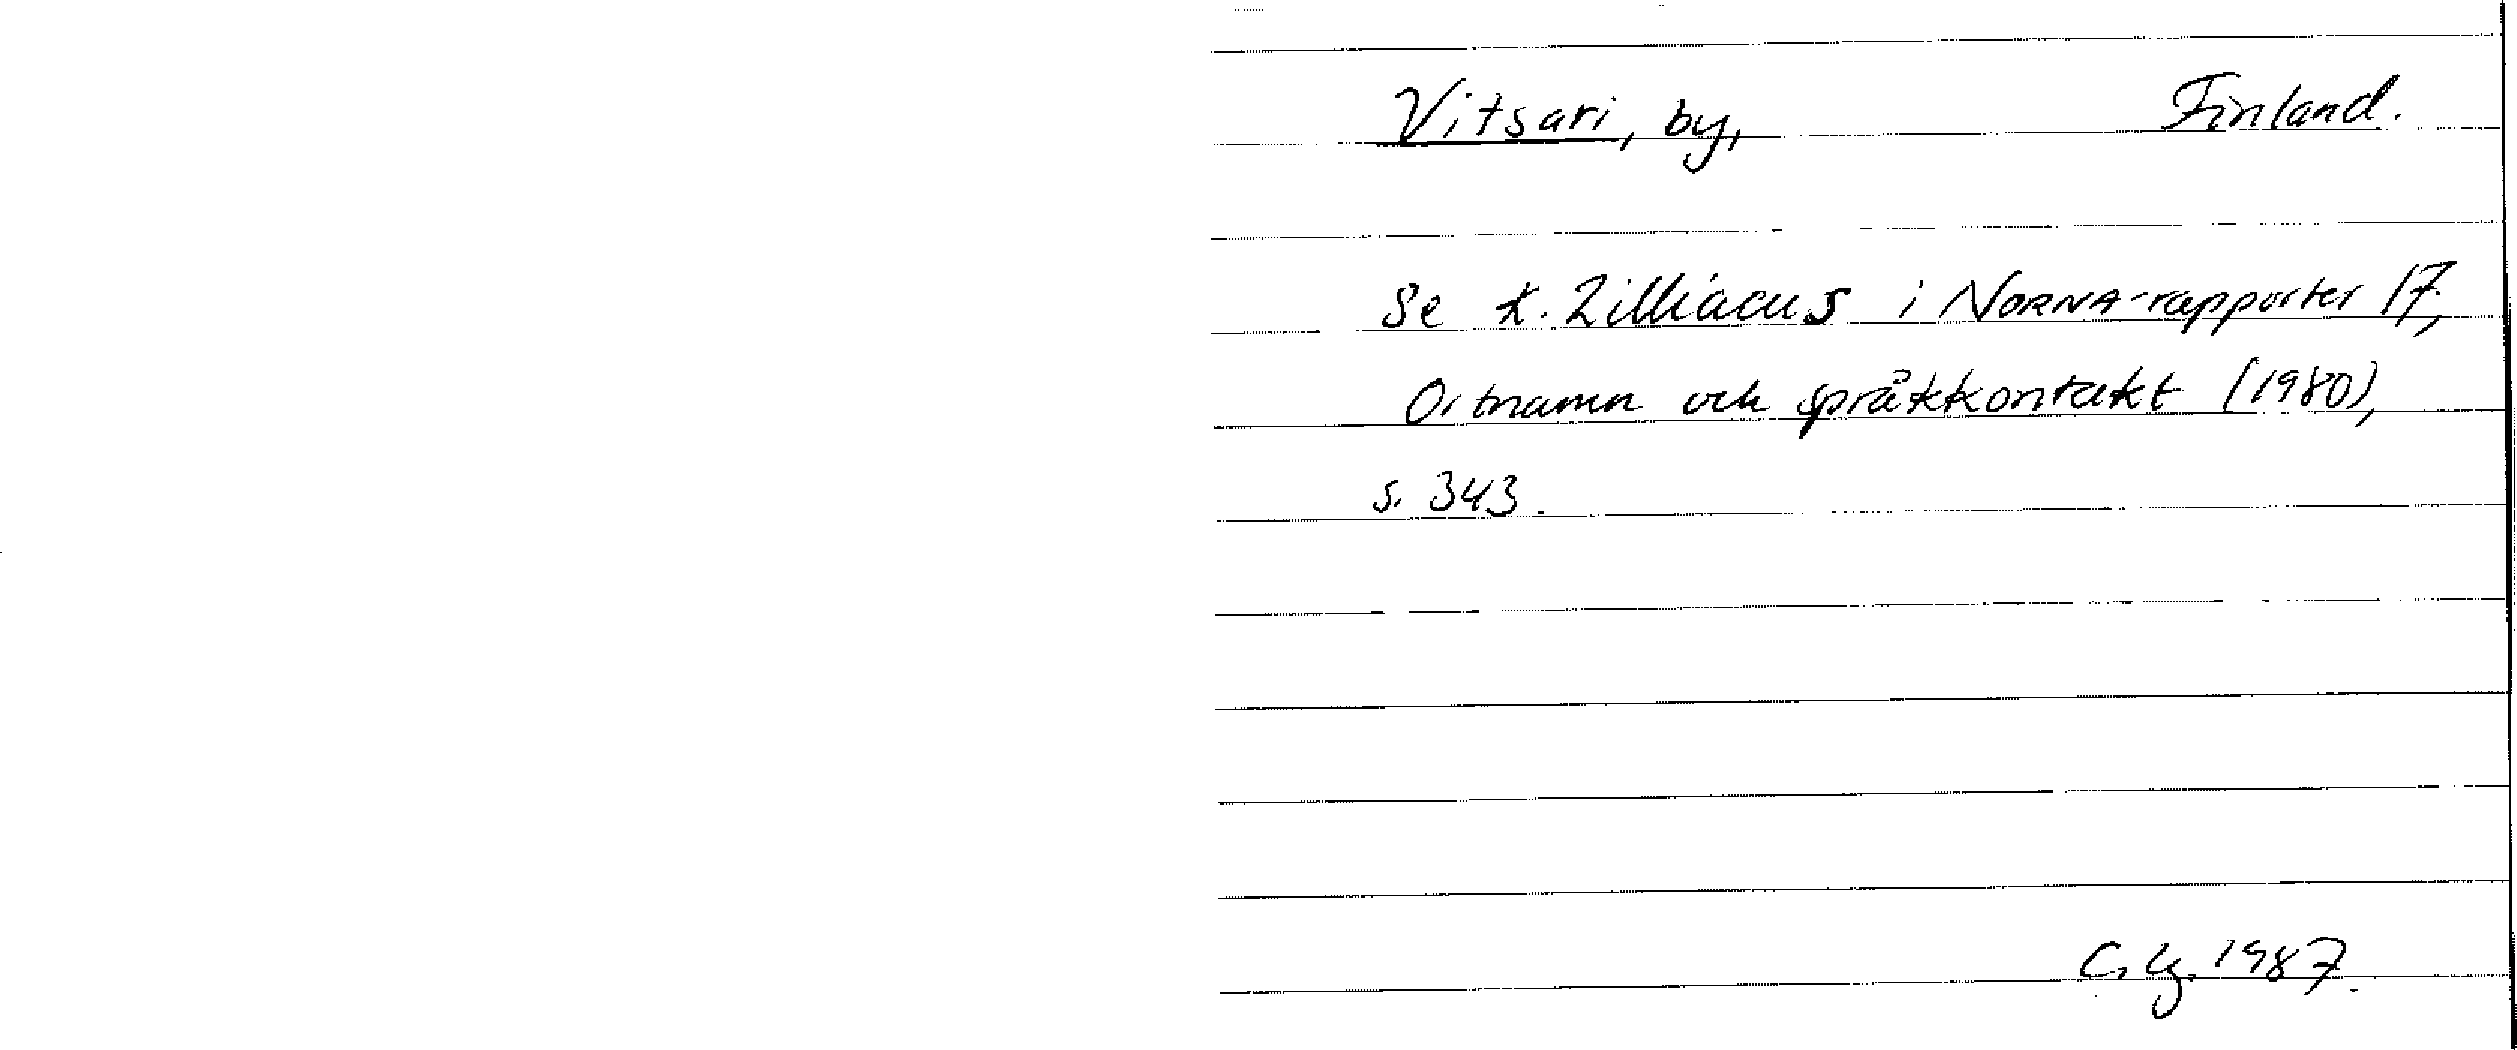 Vitsari, by, Finland.
Se K. Zilliacus i NORNA-rapporter 17,
Ortnamn och språkkontakt (1980),
s. 343.
C. G. 1987.